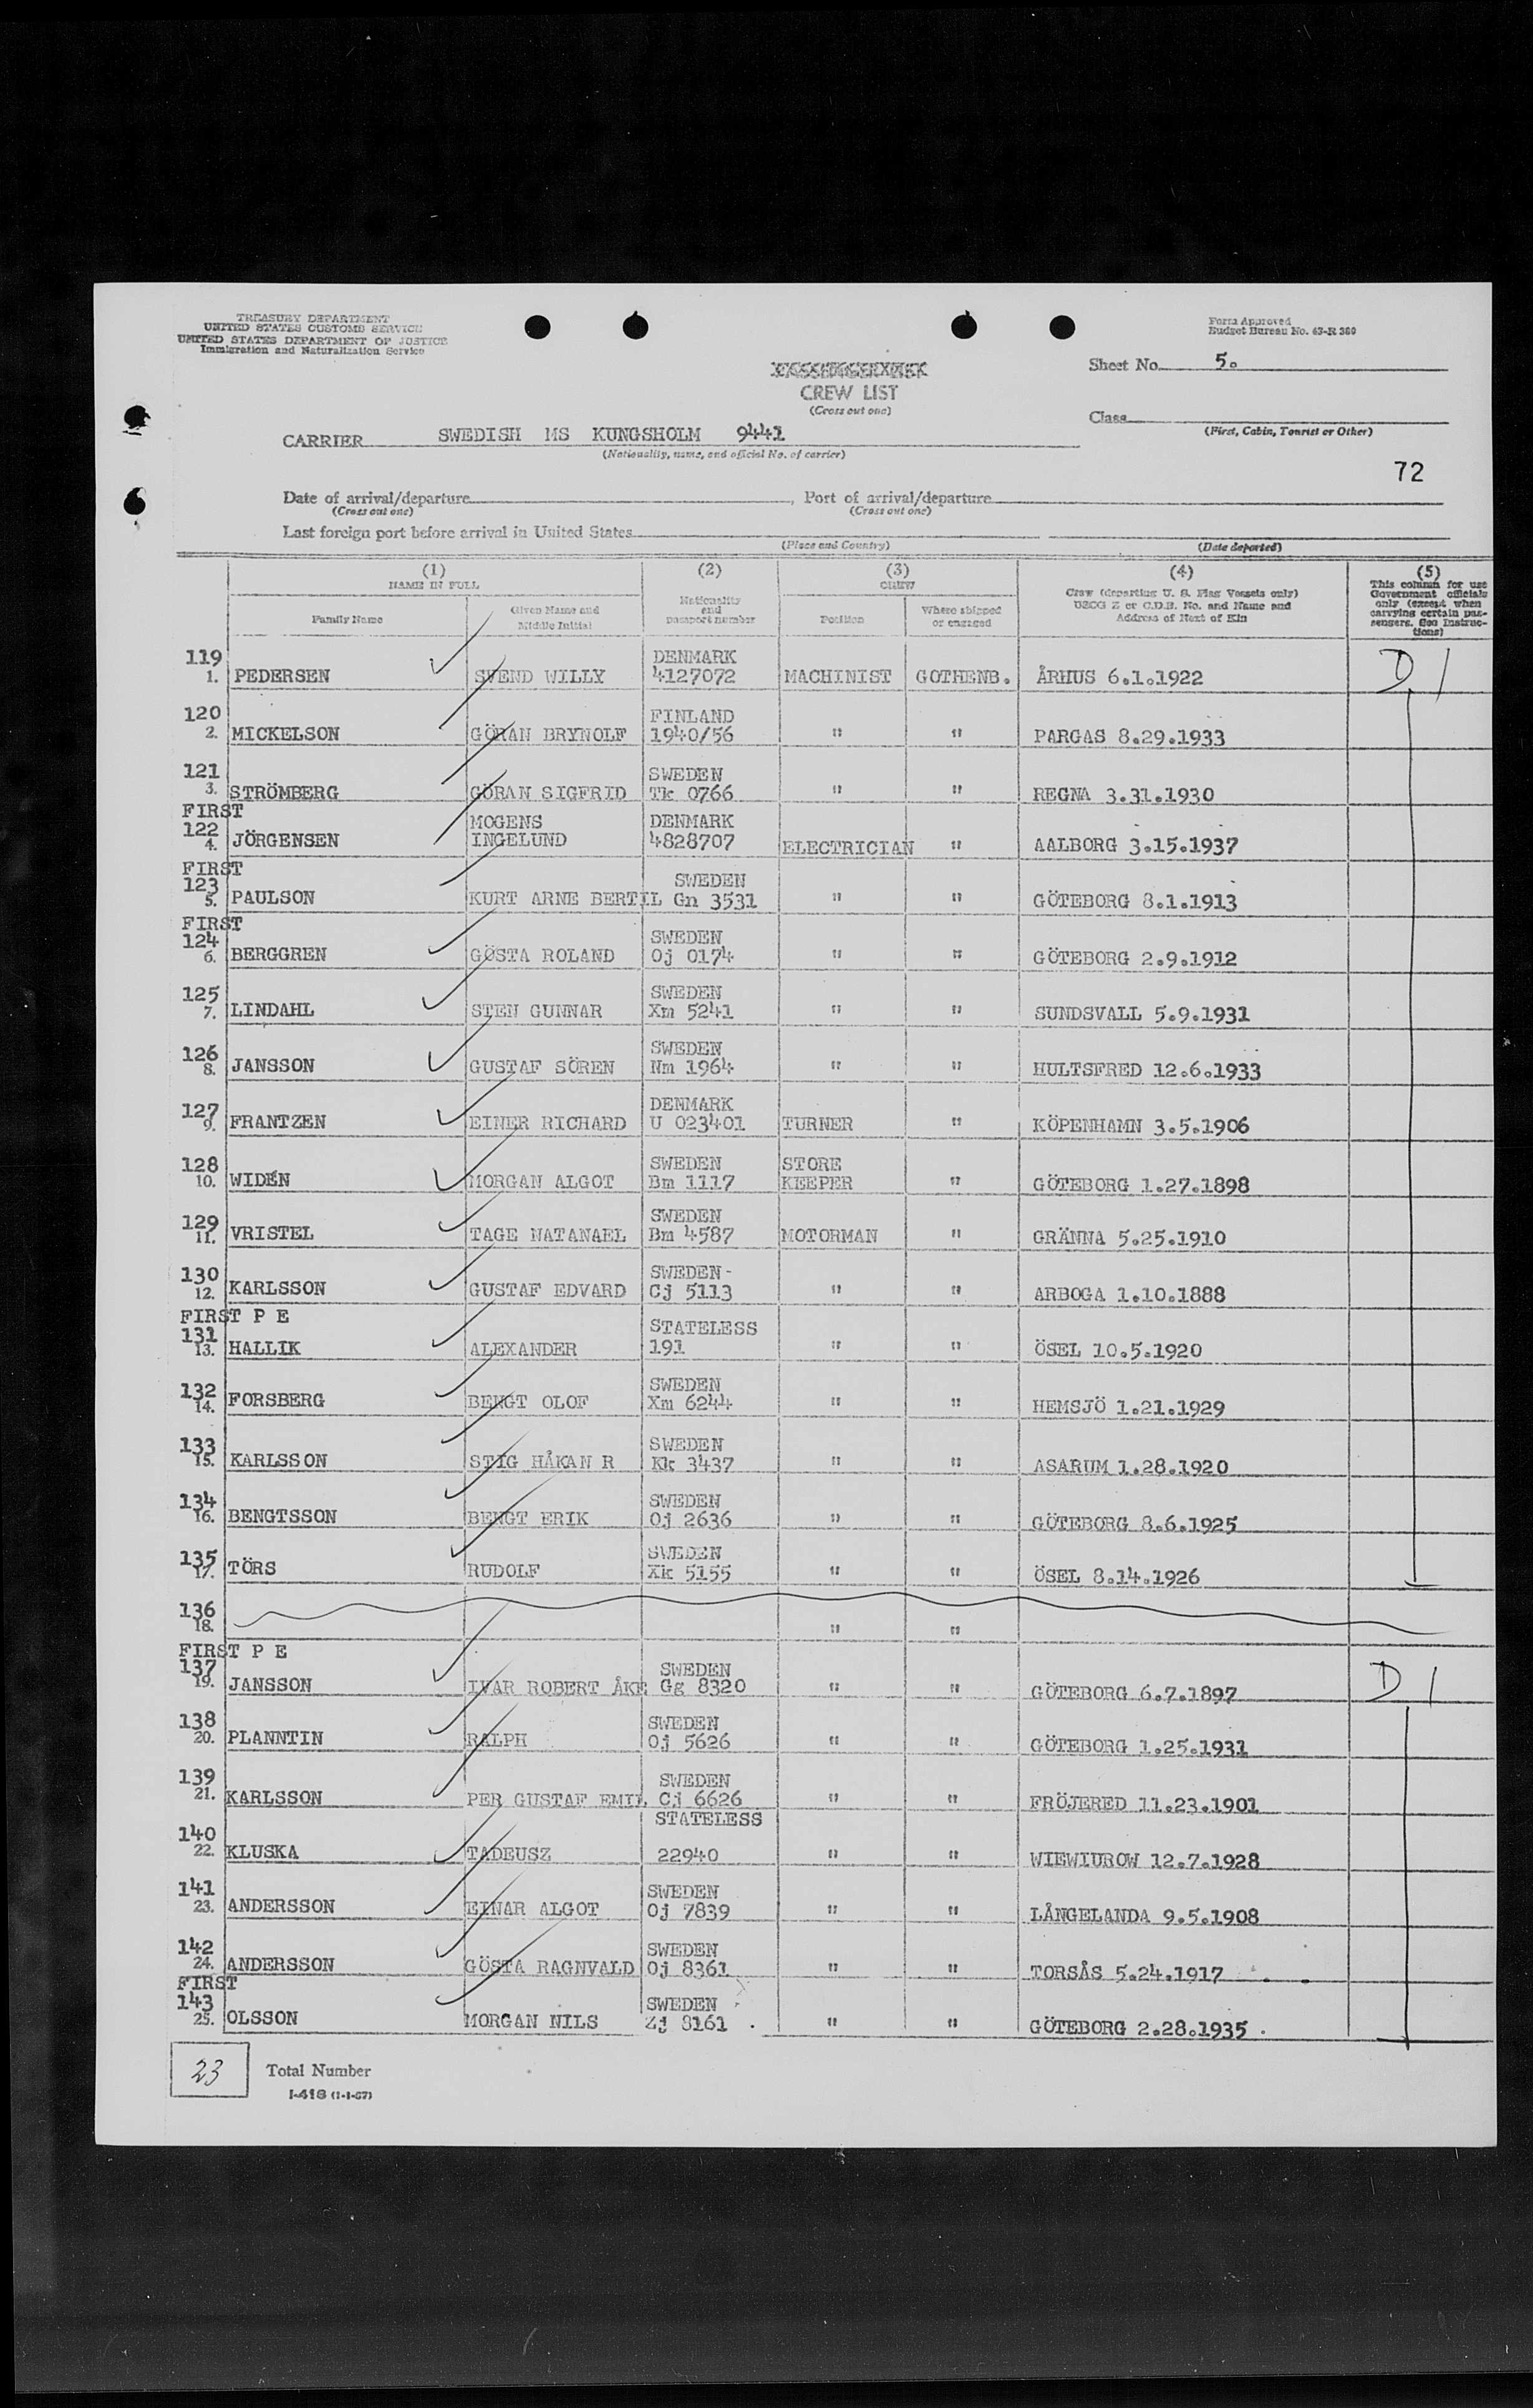 TREASURY DEPARTMENT
UNITED STATES CUSTOMS SERVICE
UNITED STATES DEPARTMENT OF JUSTICE
Immigration and Naturalization Service
Form Approved
Budget Bureau No. 43-R 380
Sheet No. 5.
CREW LIST
(Cross out one)
Class
(First, Cabin, Tourist or Other)
CARRIER SWEDISH MS KUNGSHOLM 9441
(Nationality, name, and official No. of carrier)
72
Date of arrival/departure , Port of arrival/departure
(Cross out one) (Cross out one)
Last foreign port before arrival in United States
(Place and Country) (Date departed)
(1) (2) (3) (4) (5)
NAME IN FULL Nationality and passport number CREW Crew (departing U. S. Flag Vessels only) USCG Z or C.D.B. No. and Name and Address of Next of Kin This column for use Government officials only (except when carrying certain passengers. See Instructions)
Family Name Given Name and Middle Initial Position Where shipped or engaged
119 DENMARK D 1
1. PEDERSEN SVEND WILLY 4127072 MACHINIST GOTHENB. ÅRHUS 6.1.1922
120 FINLAND
2. MICKELSON GÖRAN BRYNOLF 1940/56 " " PARGAS 8.29.1933
121 SWEDEN
3. STRÖMBERG GÖRAN SIGFRID Tk 0766 " " REGNA 3.31.1930
FIRST
122 MOGENS DENMARK
4. JÖRGENSEN INGELUND 4828707 ELECTRICIAN " AALBORG 3.15.1937
FIRST
123 SWEDEN
5. PAULSON KURT ARNE BERTIL Gn 3531 " " GÖTEBORG 8.1.1913
FIRST
124 SWEDEN
6. BERGGREN GÖSTA ROLAND Oj 0174 " " GÖTEBORG 2.9.1912
125 SWEDEN
7. LINDAHL STEN GUNNAR Xm 5241 " " SUNDSVALL 5.9.1931
126 SWEDEN
8. JANSSON GUSTAF SÖREN Nm 1964 " " HULTSFRED 12.6.1933
127 DENMARK
9. FRANTZEN EINER RICHARD U 023401 TURNER " KÖPENHAMN 3.5.1906
128 SWEDEN STORE
10. WIDÉN MORGAN ALGOT Bm 1117 KEEPER " GÖTEBORG 1.27.1898
129 SWEDEN
11. VRISTEL TAGE NATANAEL Bm 4587 MOTORMAN " GRÄNNA 5.25.1910
130 SWEDEN-
12. KARLSSON GUSTAF EDVARD Cj 5113 " " ARBOGA 1.10.1888
FIRST P E
131 STATELESS
13. HALLIK ALEXANDER 191 " " ÖSEL 10.5.1920
132 SWEDEN
14. FORSBERG BENGT OLOF Xm 6244 " " HEMSJÖ 1.21.1929
133 SWEDEN
15. KARLSSON STIG HÅKAN R Kk 3437 " " ASARUM 1.28.1920
134 SWEDEN
16. BENGTSSON BENGT ERIK Oj 2636 " " GÖTEBORG 8.6.1925
135 SWEDEN
17. TÖRS RUDOLF Xk 5155 " " ÖSEL 8.14.1926
136
18. " "
FIRST P E
137 SWEDEN D 1
19. JANSSON IVAR ROBERT ÅKE Gg 8320 " " GÖTEBORG 6.7.1897
138 SWEDEN
20. PLANNTIN RALPH Oj 5626 " " GÖTEBORG 1.25.1931
139 SWEDEN
21. KARLSSON PER GUSTAF EMIL Cj 6626 " " FRÖJERED 11.23.1901
140 STATELESS
22. KLUSKA TADEUSZ 22940 " " WIEWIUROW 12.7.1928
141 SWEDEN
23. ANDERSSON EINAR ALGOT Oj 7839 " " LÅNGELANDA 9.5.1908
142 SWEDEN
24. ANDERSSON GÖSTA RAGNVALD Oj 8361 " " TORSÅS 5.24.1917
FIRST
143 SWEDEN
25. OLSSON MORGAN NILS Zj 8161 " " GÖTEBORG 2.28.1935
23 Total Number
I-418 (1-1-67)